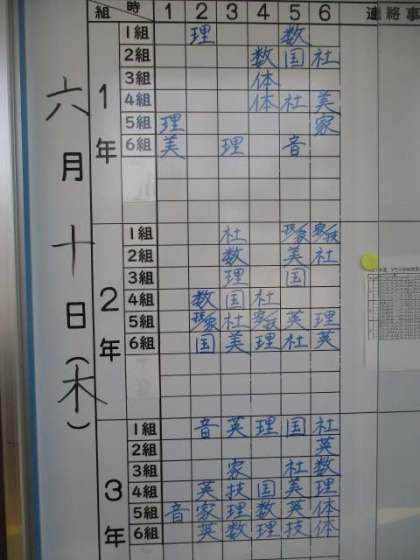 六月十日(木)
組 時 1 2 3 4 5 6 連絡事
1年
1組 理 数
2組 数 国 社
3組 体
4組 体 社 美
5組 理 家
6組 美 理 音
2年
1組 社 技家 家技
2組 数 美 社
3組 理 国
4組 数 国 社
5組 社 英 理
6組 国 美 理 社 英
3年
1組 音 英 理 国 社
2組 英
3組 家 社 数
4組 英 技 国 美 理
5組 音 家 理 数 英 体
6組 英 数 理 技 体